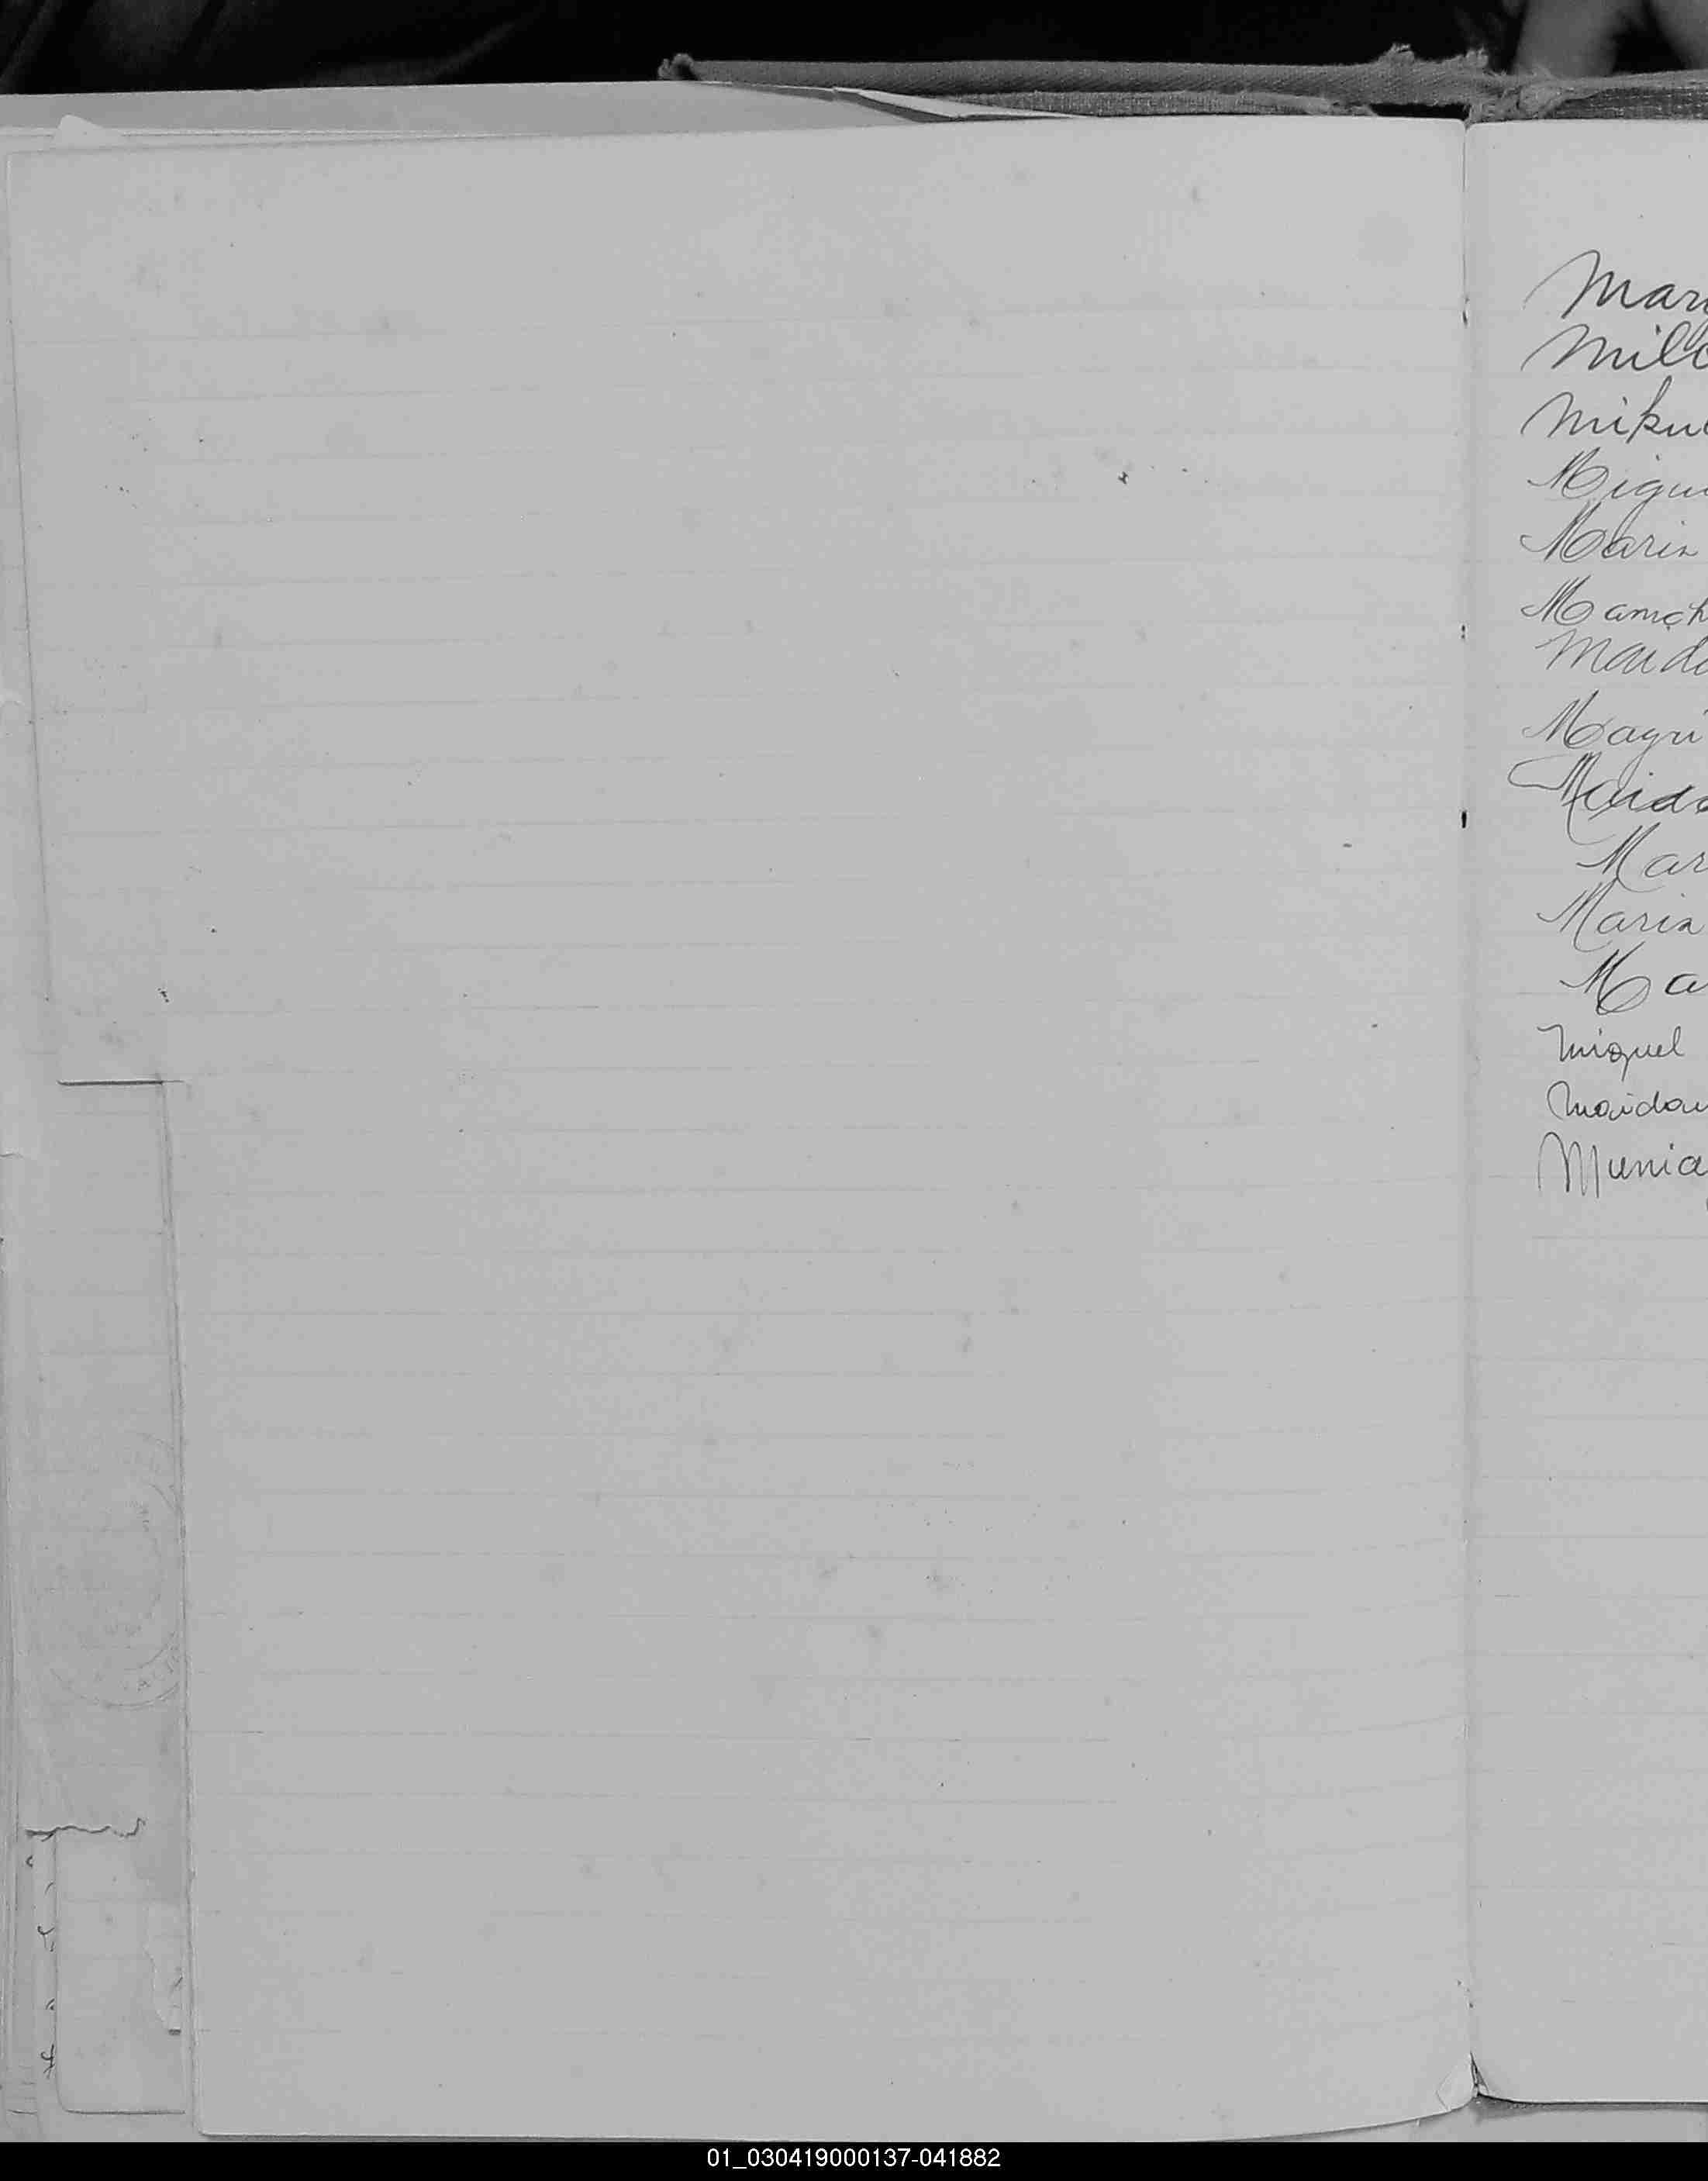 Mar
Mill
Miku
Migu
Marin
Manch
Maida
Magri
Maida
Mar
Marin
Ma
Miguel
Maidan
Munia
01_030419000137-041882